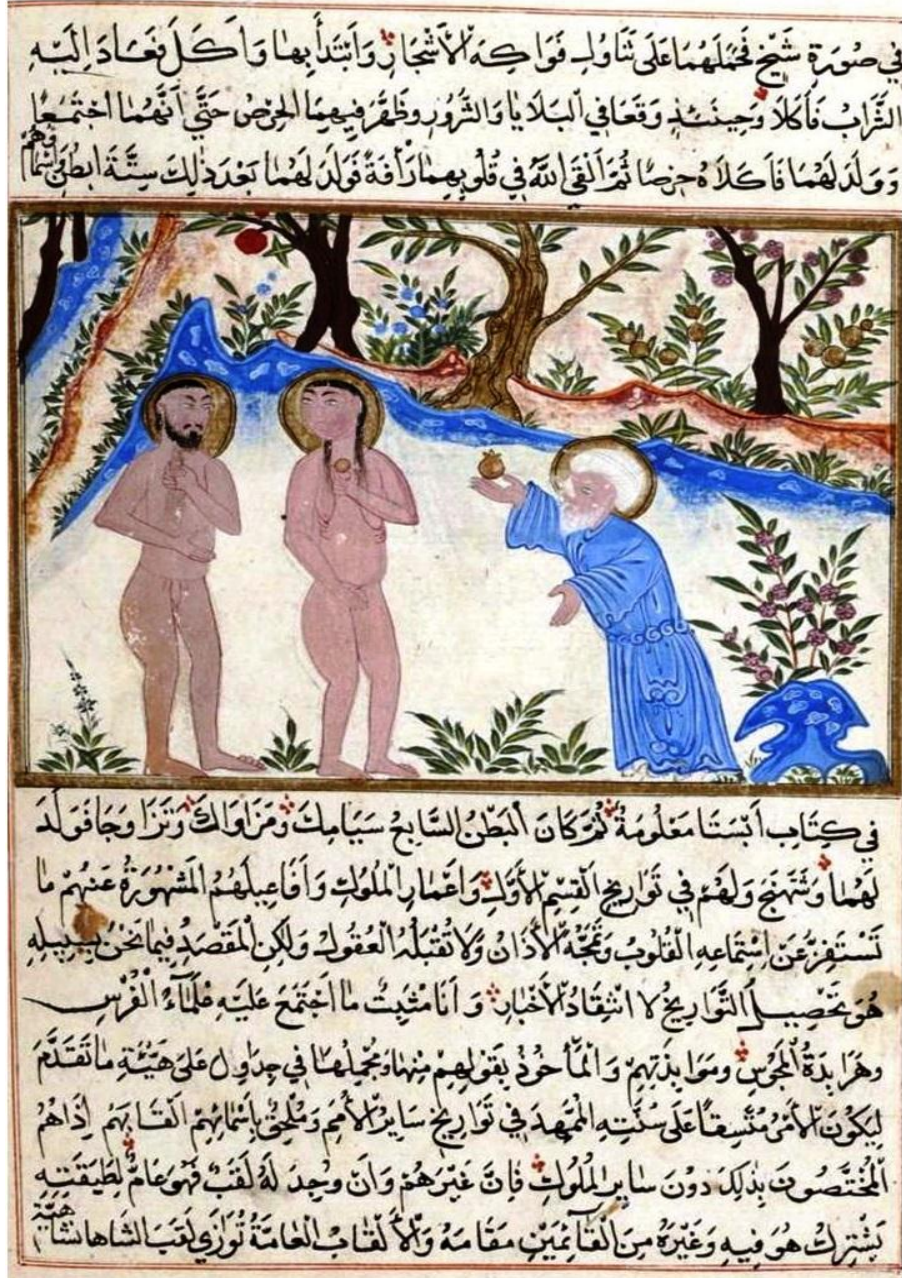 في صورة شيخ فحملهما على تناول فواكه الأشجار وابتدأ بها وأكل فعاد اليه
الشراب فأكلا وحينئذ وقعا في البلايا والشرور وظهر فيهما الحرص حتي أنهما اجتمعا
وولد لهما فأكلاه حرصا ثم ألقي الله في قلوبهما رأفة فولد لهما بعد ذلك ستة ابطن وأسماؤهم
في كتاب أبستا معلومة ثم كان البطن السابع سيامك ومزاوالك وتزاوجا فولد
لهما وشتهنج ولهم في تواريخ القسم الأول واعمار الملوك وأفاعيلهم المشهورة عنهم ما
تستفز عن استماعه القلوب وتمجه الأذان ولا تقبله العقول ولكن المقصد فيما نحن بسبيله
هو تحصيل التواريخ لا انتقاد الأخبار وأنا مثبت ما اجتمع عليه علماء الفرس
وهرابدة المجوس وموابذتهم والمأخوذ بقولهم منها ومجملها في جداول على هيئة ما تقدم
ليكون الأمر متسقا على سنته الممهد في تواريخ ساير الأمم وملحق بأسمائهم ألقابهم إذا هم
المختصون بذلك دون ساير الملوك فان غيرهم وان وجد له لقب فهو عام لطبقته
يشترك هو فيه وغيره من القائمين مقامه والألقاب العامة توازي لقب الشاهانشاهية